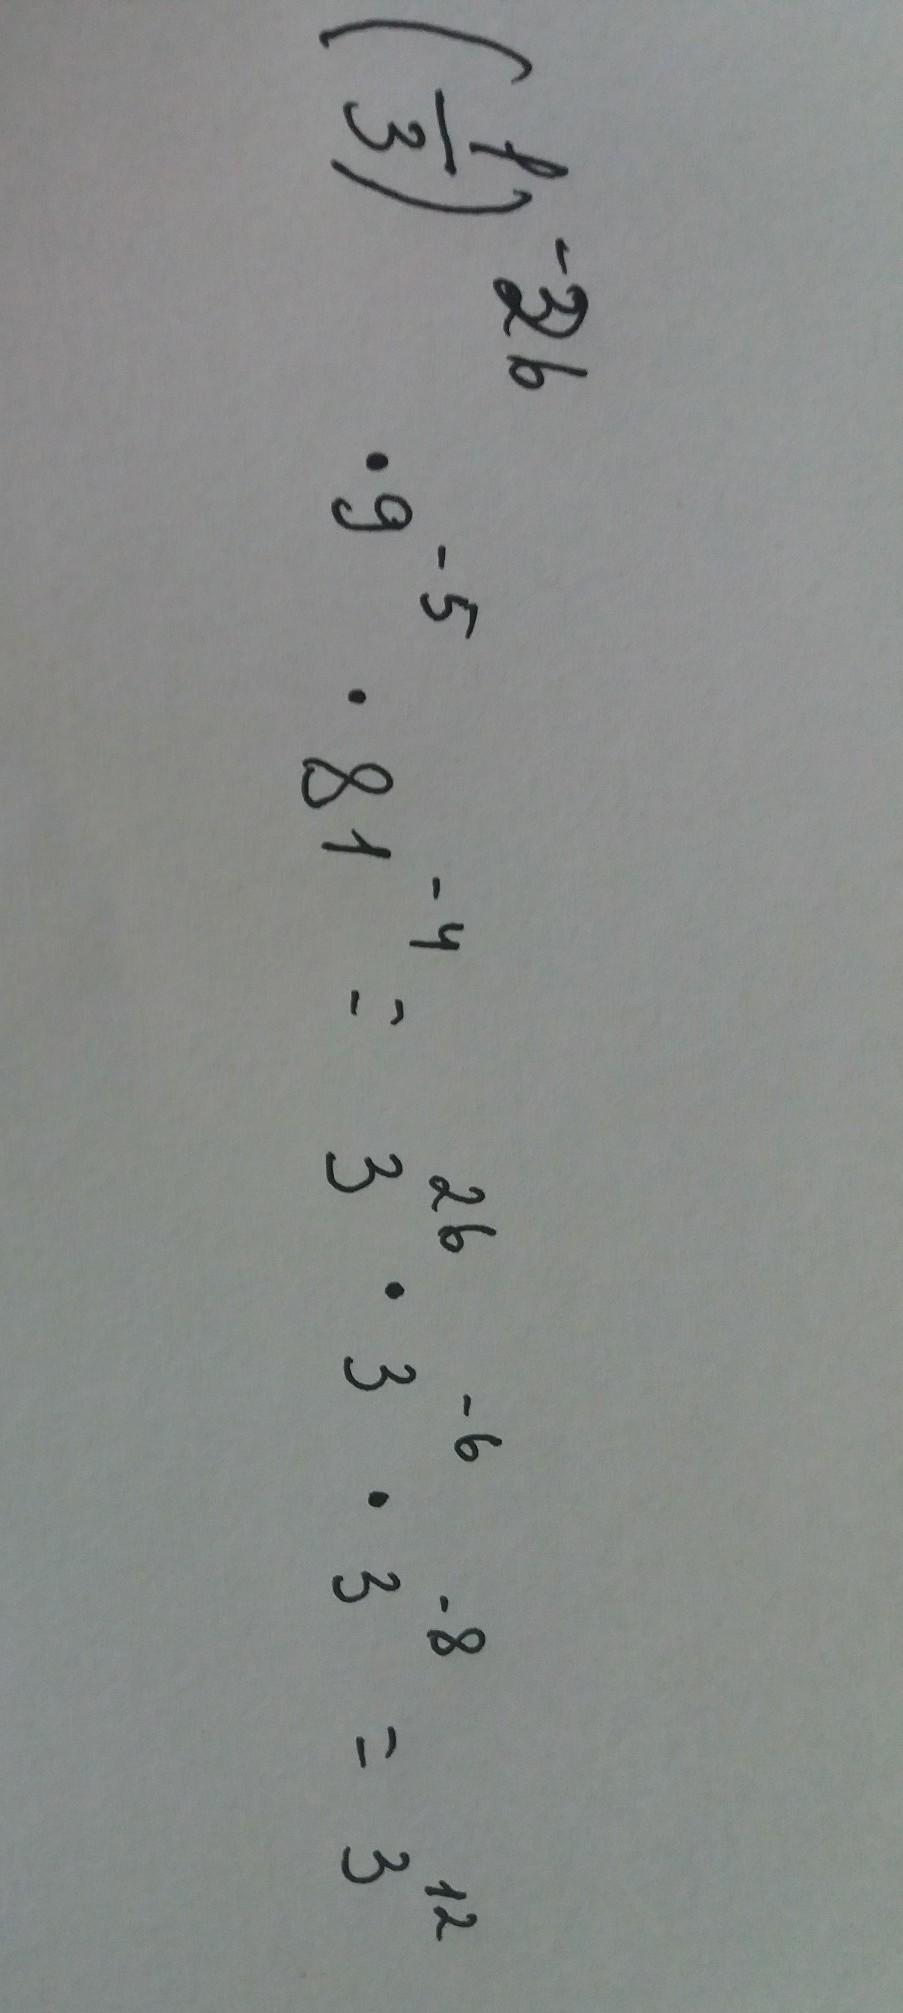 (1/3)^-26 · 9^-5 · 81^-4 = 3^26 · 3^-6 · 3^-8 = 3^12